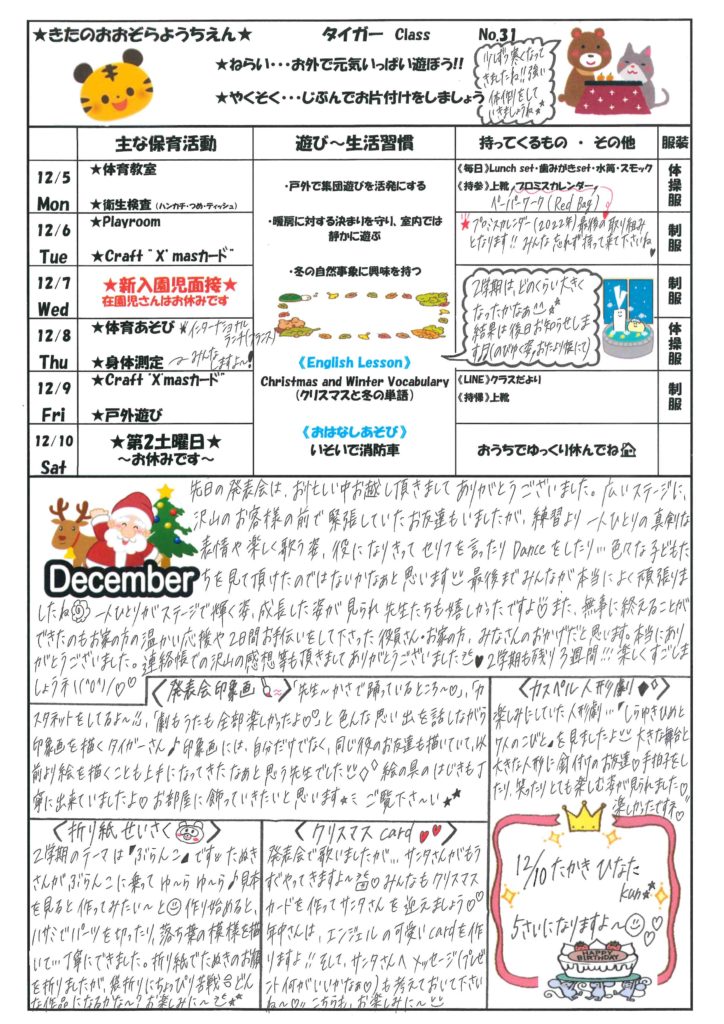 ★きたのおおぞらようちえん★ タイガー Class No.31
★ねらい・・・お外で元気いっぱい遊ぼう!!
★やくそく・・・じぶんでお片付けをしましょう
少しずつ寒くなって
きましたね!!強い
体作りをして
いきましょうね
主な保育活動 遊び～生活習慣 持ってくるもの ・ その他 服装
12/5 Mon
★体育教室
★衛生検査（ハンカチ・つめ・ティッシュ）
《毎日》Lunch set・歯みがきset・水筒・スモック
《持参》上靴、プロミスカレンダー
ペーパーワーク(Red Bag)
体操服
12/6 Tue
★Playroom
★Craft "X'masカード"
★プロミスカレンダー(2022年)最後の取り組み
となります!!みんな忘れず持って来て下さいね
制服
12/7 Wed
★新入園児面接★
在園児さんはお休みです
制服
12/8 Thu
★体育あそび ※インターナショナル
ランチ(フランス)
★身体測定 〜みんなしますよ〜!
体操服
12/9 Fri
★Craft"X'masカード"
★戸外遊び
《LINE》クラスだより
《持帰》上靴
制服
12/10 Sat
★第2土曜日★
～お休みです～
おうちでゆっくり休んでね
・戸外で集団遊びを活発にする
・暖房に対する決まりを守り、室内では
静かに遊ぶ
・冬の自然事象に興味を持つ
《English Lesson》
Christmas and Winter Vocabulary
（クリスマスと冬の単語）
《おはなしあそび》
いそいで消防車
2学期は、どのくらい大きく
なったかなぁ
結果は後日お知らせしま
す!(のびゆく姿・おたより帳にて)
December
先日の発表会は、お忙しい中お越し頂きまして ありがとうございました。広いステージに、
沢山のお客様の前で緊張していたお友達もいましたが、練習より一人ひとりの真剣な
表情や楽しく歌う姿、役になりきって セリフを言ったり Danceをしたり…色々な子どもた
ちを見て頂けたのではないかなぁと思います 最後までみんなが本当によく頑張りま
したね 一人ひとりがステージで輝く姿、成長した姿が見られ先生たちも嬉しかったですよ♡また、無事に終えることが
できたのもお家の方の温かい応援や2日間お手伝いをして下さった役員さん・お家の方、みなさんのおかげだと思います。本当にあり
がとうございました。連絡帳での沢山の感想等も頂きましてありがとうございました♥2学期も残り3週間!!!楽しくすごしま
しょうネ!(^o^)/♡♡
〈発表会印象画〉
「先生〜かさで踊っているところ〜♡」、「カ
スタネットをしてるよ〜!!」、「劇もうたも全部楽しかったよ♡」と色んな思い出を話しながら
印象画を描くタイガーさん♪印象画には、自分だけでなく、同じ役のお友達も描いていて、以
前より絵を描くことも上手になってきたなぁと思う先生でした 絵の具のはじきも丁
寧に出来ていましたよ♡お部屋に飾っていきたいと思います☆ミ ご覧下さ〜い★★
〈カスペル人形劇◆◇〉
楽しみにしていた人形劇…「しらゆきひめと
7人のこびと」を見ましたよ 大きな舞台と
大きな人形に釘付けのお友達♡手拍子をし
たり、笑ったりとても楽しむ姿が見られました♡
楽しかったですネ♡
〈折り紙せいさく〉
2学期のテーマは『ぶらんこ』です!!たぬき
さんがぶらんこに乗って ゆ〜らゆ〜ら♪見本
を見ると作ってみたい〜と 作り始めると、
ハサミでパーツを切ったり、落ち葉の模様を描
いて…丁寧にできました。折り紙でたぬきのお顔
を折りましたが、袋折りにちょっぴり苦戦 どん
な作品になるかな〜?お楽しみに〜
〈クリスマスcard♥♥〉
発表会で歌いましたが… サンタさんがもう
すぐやってきますよ〜 ♡みんなもクリスマス
カードを作ってサンタさんを迎えましょう♡♡
年中さんは、エンジェルの可愛いcardを作
りますよ!!そして、サンタさんへメッセージ(プレゼ
ント何がいいかなぁ♡)も考えておいて下さい
ね〜♡こちらも、お楽しみに〜
12/10 たかき ひなた
kun
5さいになりますよ〜
HAPPY
BIRTHDAY